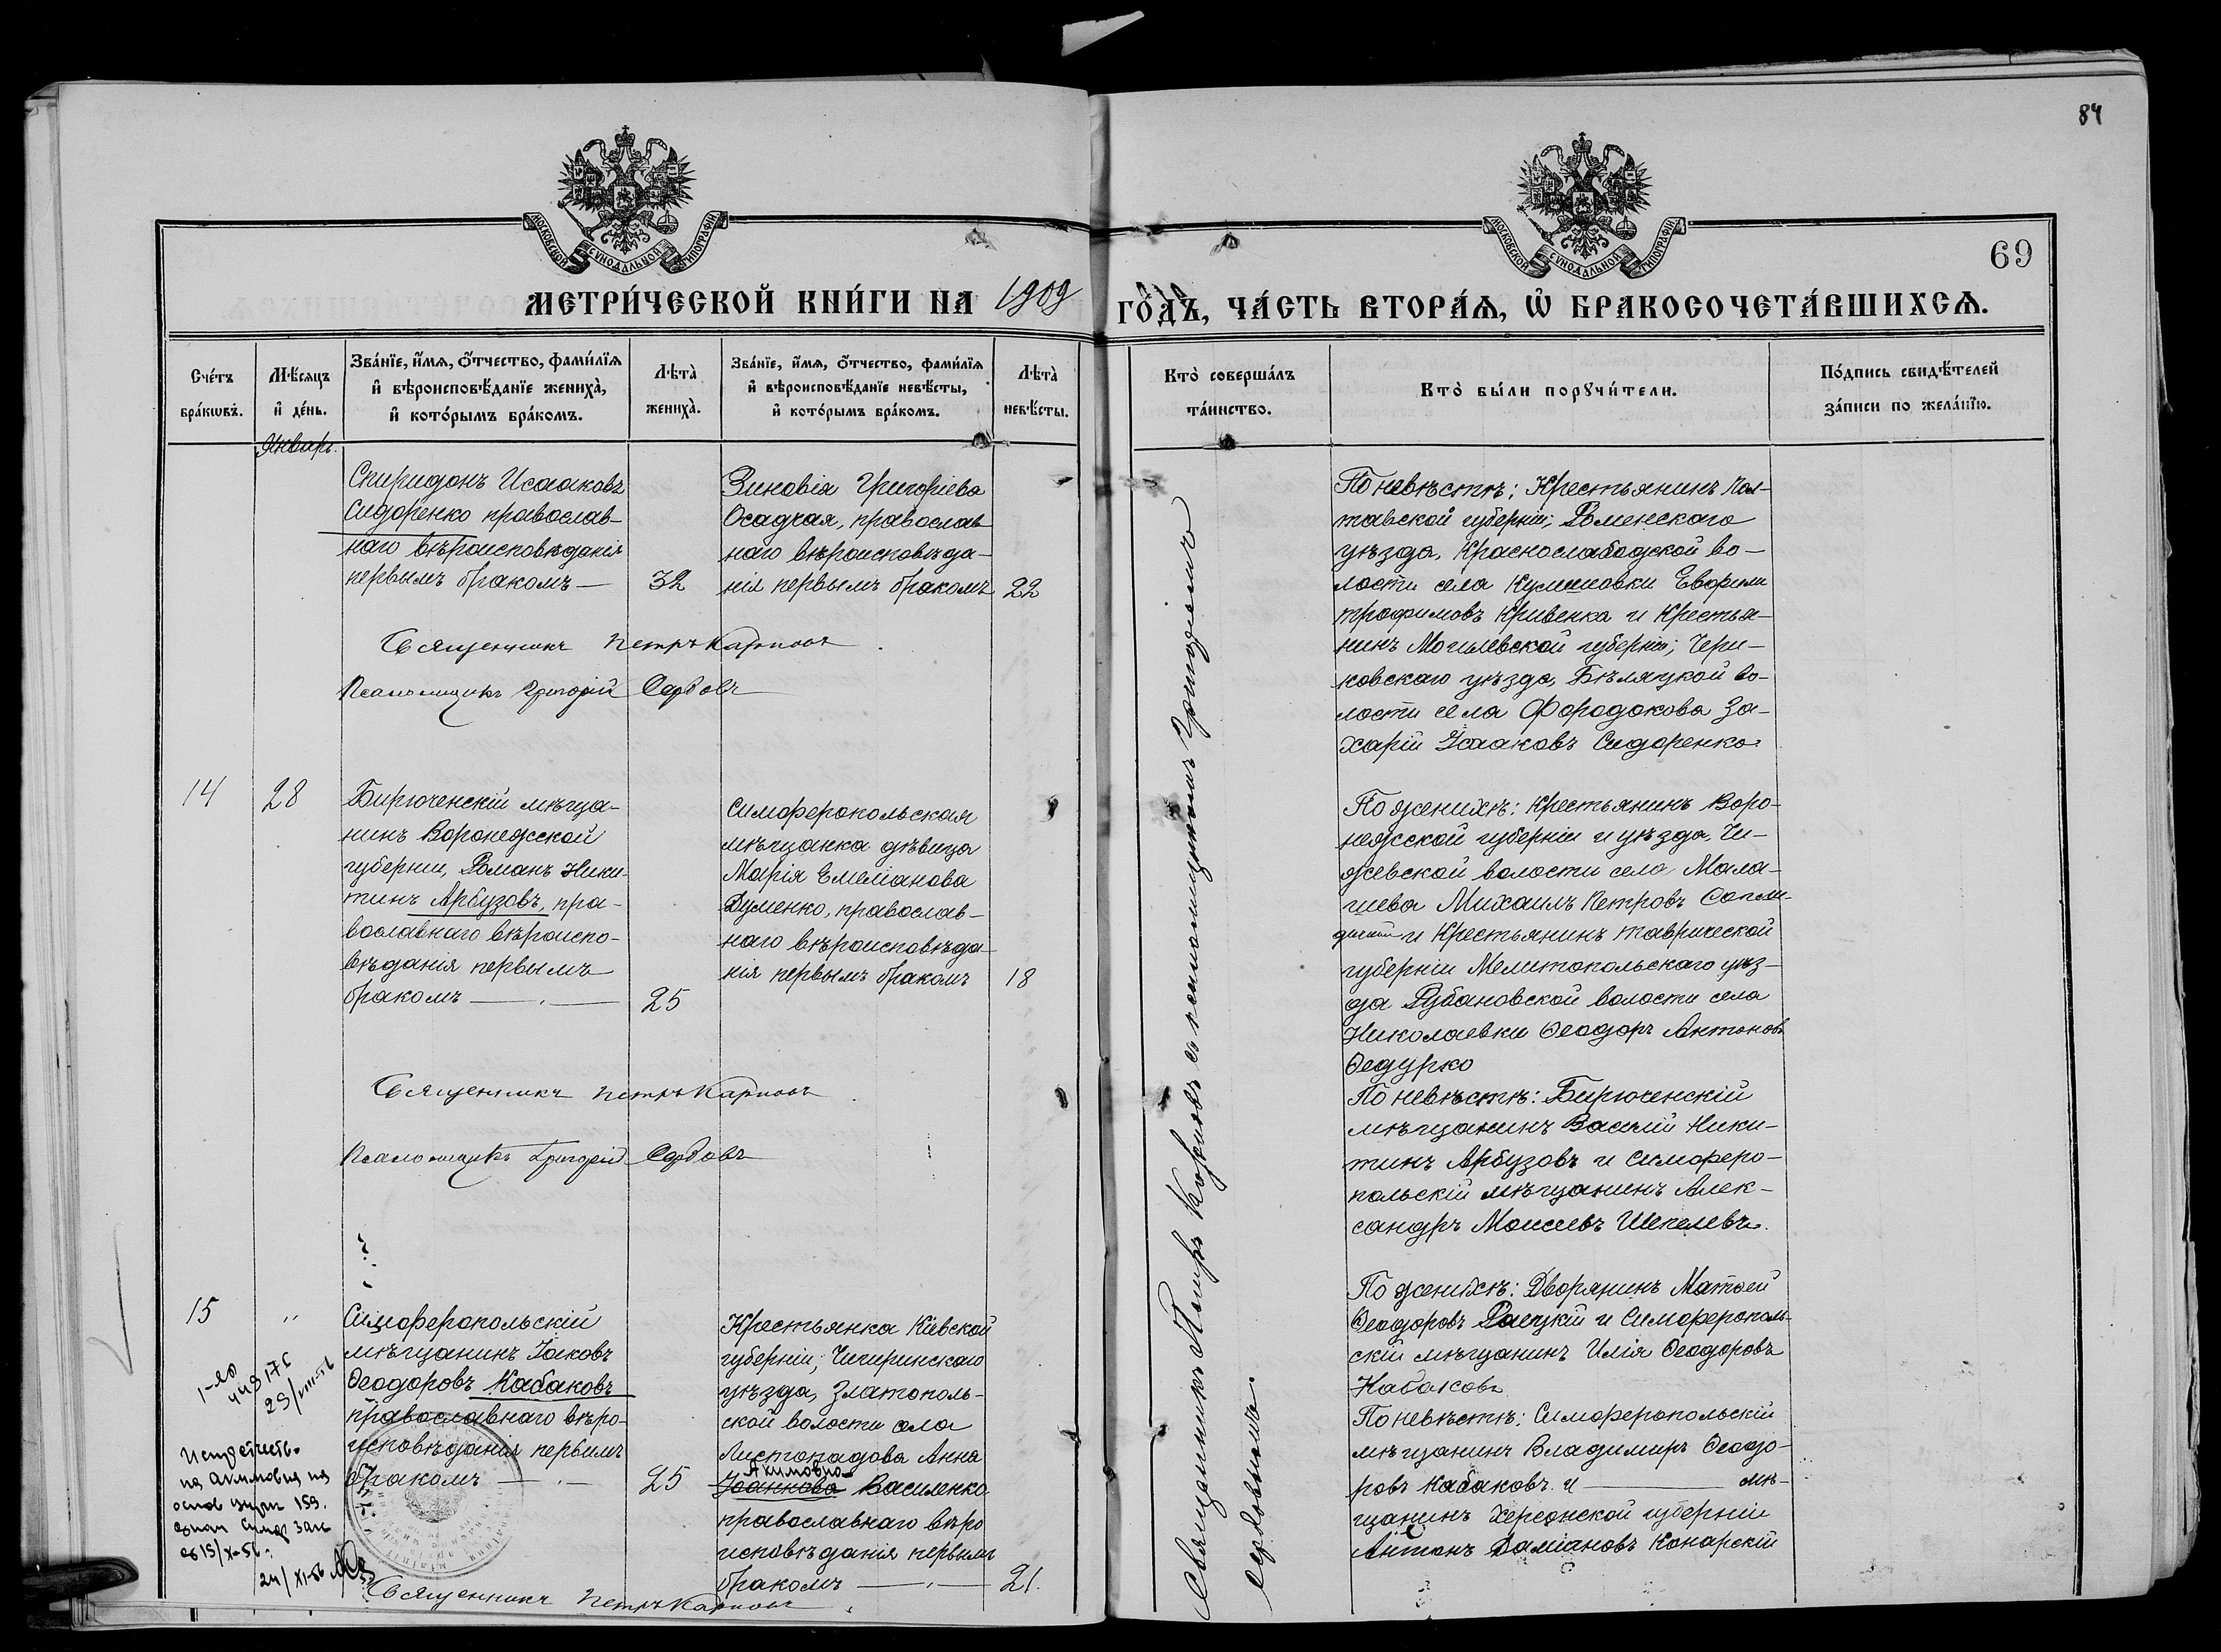 84
МОСКОВСКОЙ СѴНОДАЛЬНОЙ ТИПОГРАФІИ
МОСКОВСКОЙ СѴНОДАЛЬНОЙ ТИПОГРАФІИ
69
МЕТРИ́ЧЕСКОЙ КНИ́ГИ НА 1909 ГО́ДЪ, ЧА́СТЬ ВТОРА́Ѧ, Ѡ БРАКОСОЧЕТА́ВШИХСѦ.
Сче́тъ бра́кѡвъ.
Мѣ́сяцъ и де́нь.
Зва́нїе, и́мѧ, ѻ́тчество, фами́лїѧ и вѣроисповѣ́данїе женихà, и кото́рымъ бра́комъ.
Лѣ́та женихà.
Зва́нїе, и́мѧ, ѻ́тчество, фами́лїѧ и вѣроисповѣ́данїе невѣ́сты, и кото́рымъ бра́комъ.
Лѣ́та невѣ́сты.
Кто̀ соверша́лъ та́инство.
Кто̀ бы́ли порꙋчи́тели.
По́дпись свидѣ́телей за́писи по жела́нїю.
Январь.
Спиридонъ Исааковъ
Сидоренко православ-
наго вѣроисповѣданія
первымъ бракомъ —
32
Зиновія Григоріева
Осадчая, православ
наго вѣроисповѣда-
нія первымъ бракомъ
22
Священникъ Петръ Карповъ
Псаломщикъ Григорій Сербовъ
По невѣстѣ: Крестьянинъ Пол-
тавской губерніи, Роменскаго
уѣзда, Краснослабодской во-
лости села Кулишовки Евфими
Трофимовъ Кривенка и Крестья-
нинъ Могилевской губерніи, Чери-
ковскаго уѣзда, Бѣляцкой во-
лости села Фородокова За-
харій Исааковъ Сидоренко
14
28
Бирюченскій мѣща-
нинъ Воронежской
губерніи, Романъ Ники-
тинъ Арбузовъ, пра-
вославнаго вѣроиспо-
вѣданія первымъ
бракомъ —
25
Симферопольская
мѣщанка дѣвица
Марія Емеліанова
Думенко, православ-
наго вѣроисповѣда-
нія первымъ бракомъ
18
Священникъ Петръ Карповъ
Псаломщикъ Григорій Сербовъ
По женихѣ: Крестьянинъ Воро-
нежской губерніи и уѣзда, Чи-
жевской волости села Мала-
шева Михаилъ Петровъ
и Крестьянинъ Таврической
губерніи Мелитопольскаго уѣз-
да Рубановской волости села
Николаевки Ѳеодоръ Антоновъ
Ѳедурко
По невѣстѣ: Бирюченскій
мѣщанинъ Василій Ники-
тинъ Арбузовъ и Симферо-
польскій мѣщанинъ Алек-
сандръ Моисеевъ Шепелевъ.
15
"
Симферопольскій
мѣщанинъ Іаковъ
Ѳеодоровъ Кабаковъ
православнаго вѣро-
исповѣданія первымъ
бракомъ —
25
Крестьянка Кіевской
губерніи, Чигиринскаго
уѣзда, Златополь-
ской волости села
Листопадова Анна
Акимовна
Іоаннова Василенко
православнаго вѣро
исповѣданія первымъ
бракомъ —
21.
Священникъ Петръ Карповъ
По женихѣ: Дворянинъ Матѳей
Ѳеодоровъ Раецкій и Симферополь-
скій мѣщанинъ Илія Ѳеодоровъ
Кабаковъ
По невѣстѣ: Симферопольскій
мѣщанинъ Владимиръ Ѳеодо-
ровъ Кабаковъ и — мѣ-
щанинъ Херсонской губерніи
Антонъ Даміановъ Конарскій
Священникъ Петръ Карповъ съ псаломщикомъ Григоріемъ
Сербовымъ.
на Акимовна на
24/XI-56